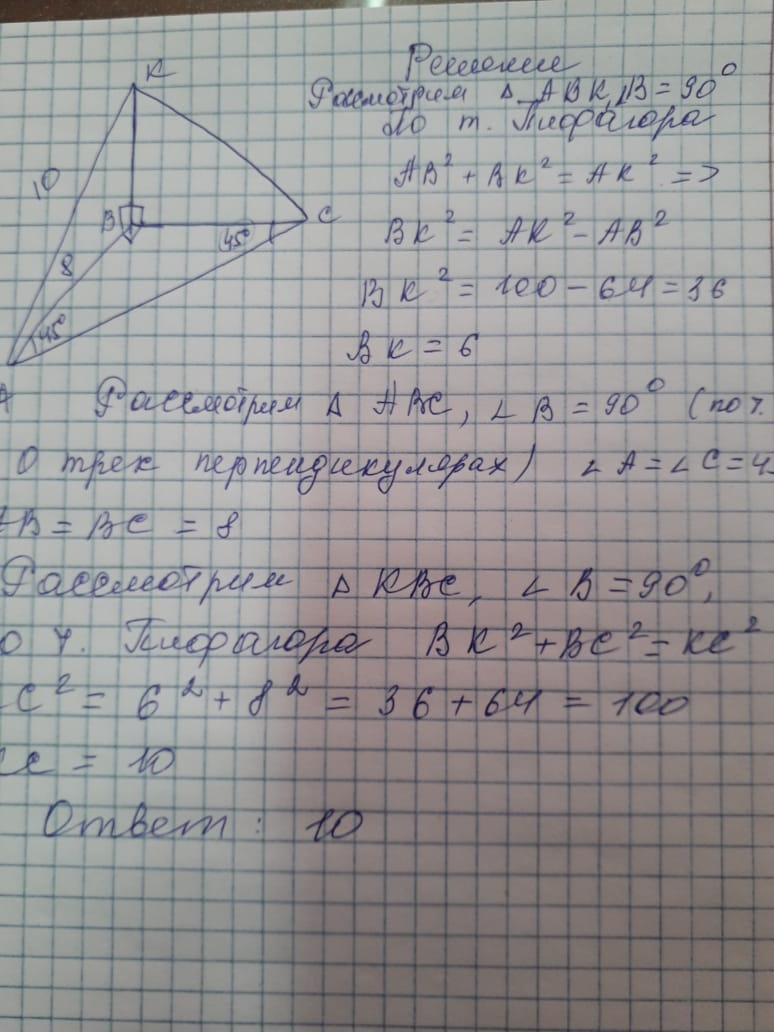 Решение
Рассмотрим △ ABK, ∠B = 90°
По т. Пифагора
AB² + BK² = AK² =>
BK² = AK² - AB²
BK² = 100 - 64 = 36
BK = 6
K
10
B
C
45°
8
45°
Рассмотрим △ ABC, ∠B = 90° (по т.
О трех перпендикулярах) ∠A = ∠C = 4
AB = BC = 8
Рассмотрим △ KBC, ∠B = 90°,
о т. Пифагора BK² + BC² = KC²
C² = 6² + 8² = 36 + 64 = 100
KC = 10
Ответ: 10